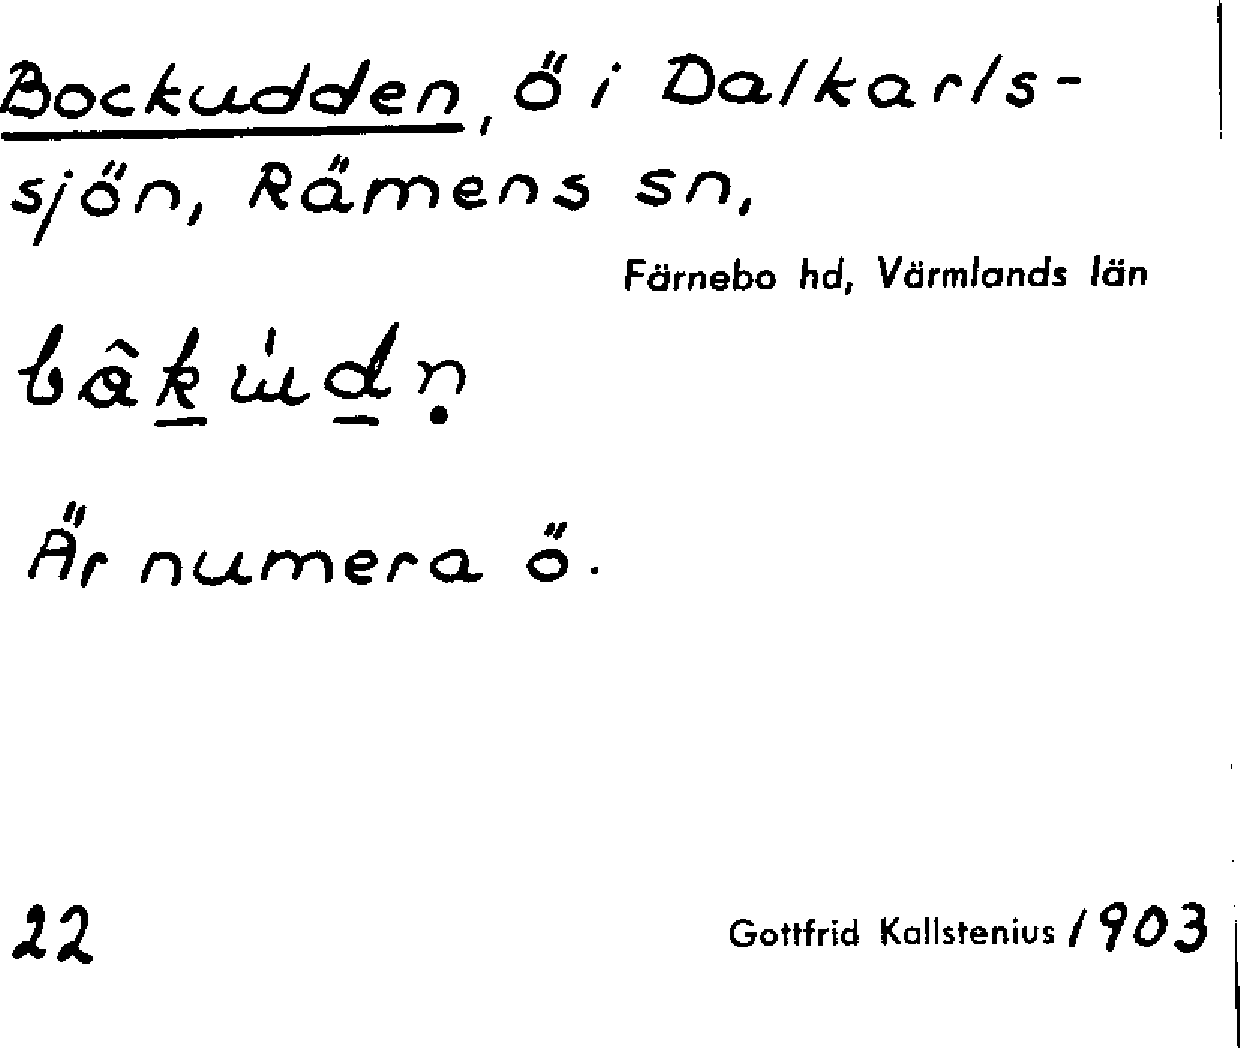 Bockudden, ö i Dalkarls-
sjön, Rämens sn,
Färnebo hd, Värmlands län
bâk̲u̍d̲ṇ
Är numera ö.
22 Gottfrid Kallstenius 1903